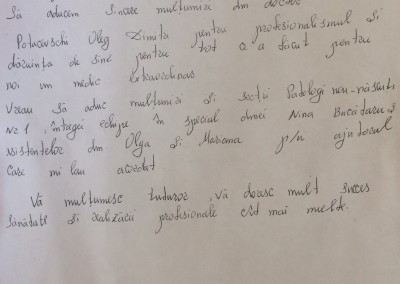 Să aducem sincere mulțumiri dm doctor
Potacivschi Oleg Zimita pentru profesionalismul și
dăruința de sine pentru tot a a făcut pentru
noi un medic extraordinar
Vreau să aduc multumiri și secții Patologi nou-născuti
Nr 1, întregei echipe în special dnei Nina
asistentelor dm Olga și Mariana p/u ajutorul
care mi lau acordat
Vă multumesc tuturor, vă doresc mult succes
Sănătate și realizării profesionale cât mai multe.